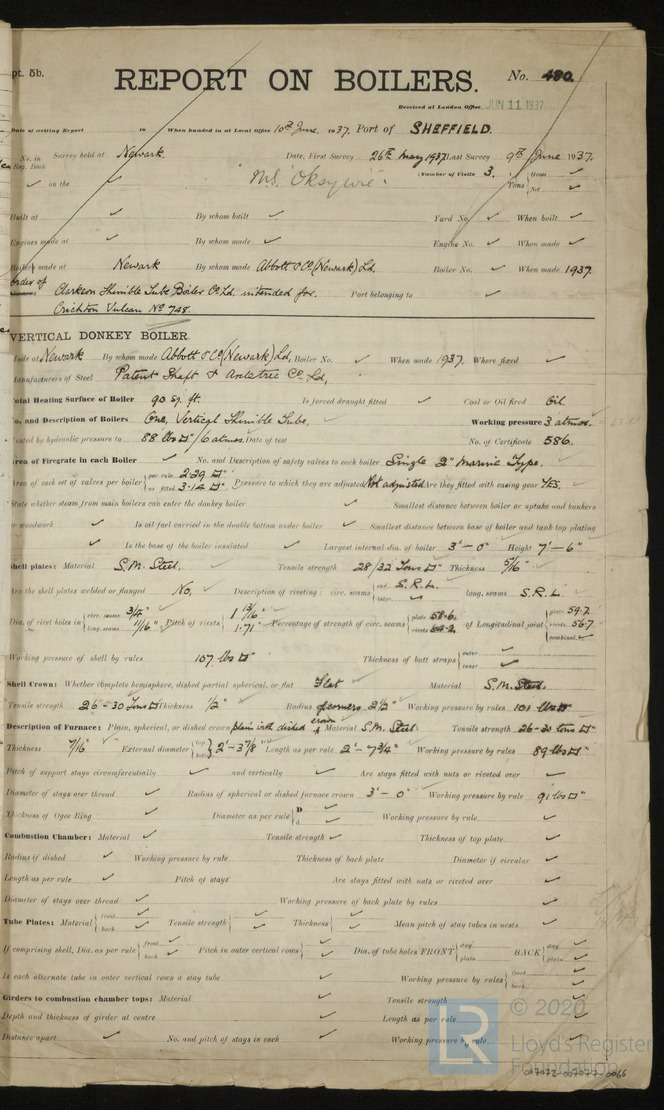 pt. 5b.
REPORT ON BOILERS.
No. 490.
Received at London Office JUN 11 1937
Date of writing Report 19 When handed in at Local Office 10th June 1937. Port of SHEFFIELD.
No. in Reg. Book Survey held at Newark. Date, First Survey 26th May 1937 Last Survey 9th June 1937.
✓ on the ✓ (Number of Visits 3. Tons { Gross ✓ Net ✓
MS. "Oksywie".
Built at ✓ By whom built ✓ Yard No. ✓ When built ✓
Engines made at ✓ By whom made ✓ Engine No. ✓ When made ✓
Boilers made at Newark By whom made Abbott & Co (Newark) Ld. Boiler No. ✓ When made 1937.
Order of Clarkson Thimble Tube Boiler Co Ld, intended for. Port belonging to ✓
Crichton Vulcan No 748.
VERTICAL DONKEY BOILER.
Made at Newark By whom made Abbott & Co (Newark) Ld, Boiler No. ✓ When made 1937. Where fixed ✓
Manufacturers of Steel Patent Shaft & Axletree Co Ld,
Total Heating Surface of Boiler 90 sq. ft. Is forced draught fitted ✓ Coal or Oil fired Oil.
No. and Description of Boilers One, Vertical Thimble Tube, Working pressure 3 atmos.
Tested by hydraulic pressure to 88 lbs □" / 6 atmos. Date of test No. of Certificate 586.
Area of Firegrate in each Boiler ✓ No. and Description of safety valves to each boiler Single 2" Marine Type.
Area of each set of valves per boiler { per rule 2.29 □" as fitted 3.14 □" Pressure to which they are adjusted Not adjusted Are they fitted with easing gear YES.
State whether steam from main boilers can enter the donkey boiler ✓ Smallest distance between boiler or uptake and bunkers
or woodwork ✓ Is oil fuel carried in the double bottom under boiler ✓ Smallest distance between base of boiler and tank top plating
✓ Is the base of the boiler insulated ✓ Largest internal dia. of boiler 3' - 0" Height 7' - 6"
Shell plates: Material S.M. Steel. Tensile strength 28/32 Tons □" Thickness 5/16"
Are the shell plates welded or flanged No, Description of riveting: circ. seams { end S.R.L. inter. ✓ long. seams S.R.L.
Dia. of rivet holes in { circ. seams 3/4" long. seams 11/16" Pitch of rivets { 1 13/16" 1.71" Percentage of strength of circ. seams { plate 58.6. rivets of Longitudinal joint { plate 59.7 rivets 56.7 combined ✓
Working pressure of shell by rules 107 lbs □" Thickness of butt straps { outer ✓ inner ✓
Shell Crown: Whether complete hemisphere, dished partial spherical, or flat Flat Material S.M. Steel.
Tensile strength 26-30 Tons □" Thickness 1/2" Radius of corners 2 1/2" Working pressure by rules 101 lbs □"
Description of Furnace: Plain, spherical, or dished crown plain with dished crown Material S.M. Steel. Tensile strength 26-30 tons □"
Thickness 7/16" External diameter { top bottom } 2' - 3 7/8" Length as per rule 2' - 7 3/4" Working pressure by rules 89 lbs □"
Pitch of support stays circumferentially ✓ and vertically ✓ Are stays fitted with nuts or riveted over ✓
Diameter of stays over thread ✓ Radius of spherical or dished furnace crown 3' - 0" Working pressure by rule 91 lbs □"
Thickness of Ogee Ring ✓ Diameter as per rule { D ✓ d ✓ Working pressure by rule ✓
Combustion Chamber: Material ✓ Tensile strength ✓ Thickness of top plate ✓
Radius if dished ✓ Working pressure by rule Thickness of back plate Diameter if circular ✓
Length as per rule ✓ Pitch of stays Are stays fitted with nuts or riveted over ✓
Diameter of stays over thread ✓ Working pressure of back plate by rules ✓
Tube Plates: Material { front ✓ back ✓ Tensile strength { ✓ Thickness { ✓ Mean pitch of stay tubes in nests ✓
If comprising shell, Dia. as per rule { front ✓ back ✓ Pitch in outer vertical rows { ✓ Dia. of tube holes FRONT { stay plain BACK { stay ✓ plain ✓
Is each alternate tube in outer vertical rows a stay tube ✓ Working pressure by rules { front ✓ back ✓
Girders to combustion chamber tops: Material ✓ Tensile strength ✓
Depth and thickness of girder at centre ✓ Length as per rule ✓
Distance apart ✓ No. and pitch of stays in each ✓ Working pressure by rule ✓
LR © 2020 Lloyd's Register Foundation
007072-007077-0066